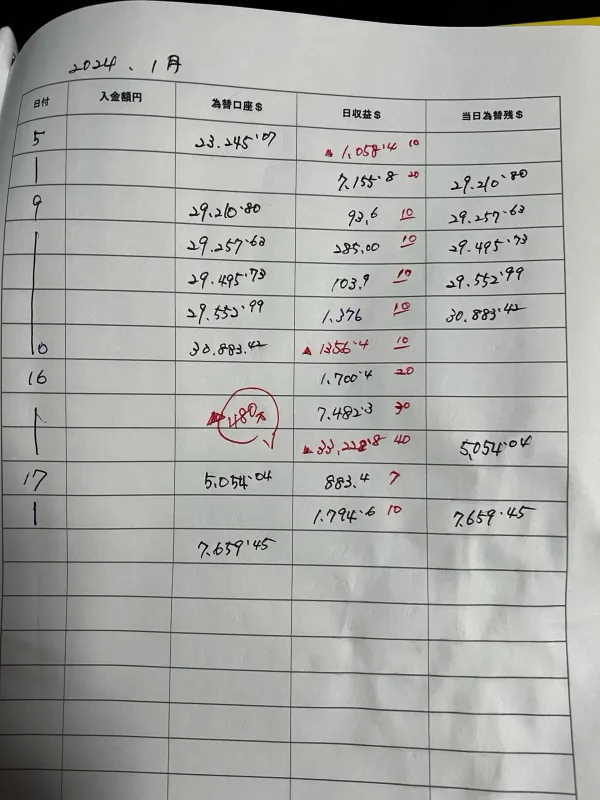 2024. 1月
日付 入金額円 為替口座$ 日収益$ 当日為替残$
5 23.245.07 ▲1,058.4 10
7,155.8 20 29.210.80
9 29.210.80 93,6 10 29.257.63
29.257.63 285.00 10 29.495.73
29.495.73 103.9 10 29.552.99
29.552.99 1.376 10 30.883.42
10 30.883.42 ▲1356.4 10
16 1.700.4 20
▲480 7.482.3 30
▲33,228.8 40 5,054.04
17 5,054.04 883.4 7
1.794.6 10 7.659.45
7.659.45